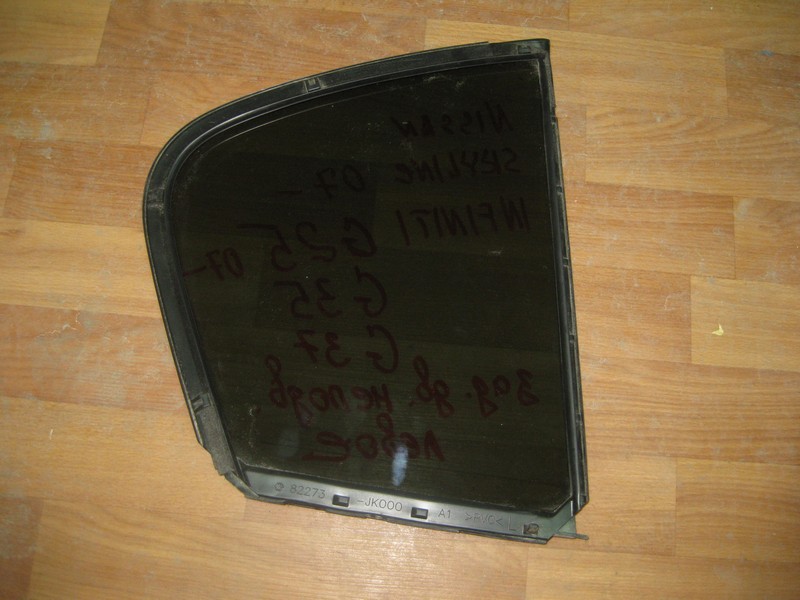 NISSAN
SKYLINE 07-
INFINITI
G25 07-
G35
G37
зад. дв. неподв
левое
82273 -JK000 A1 >PVC< L